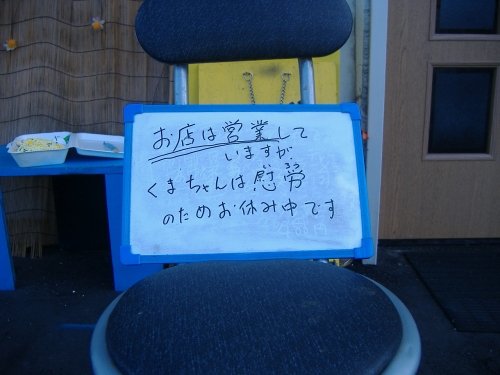 お店は営業して
いますが
くまちゃんは慰労
のためお休み中です